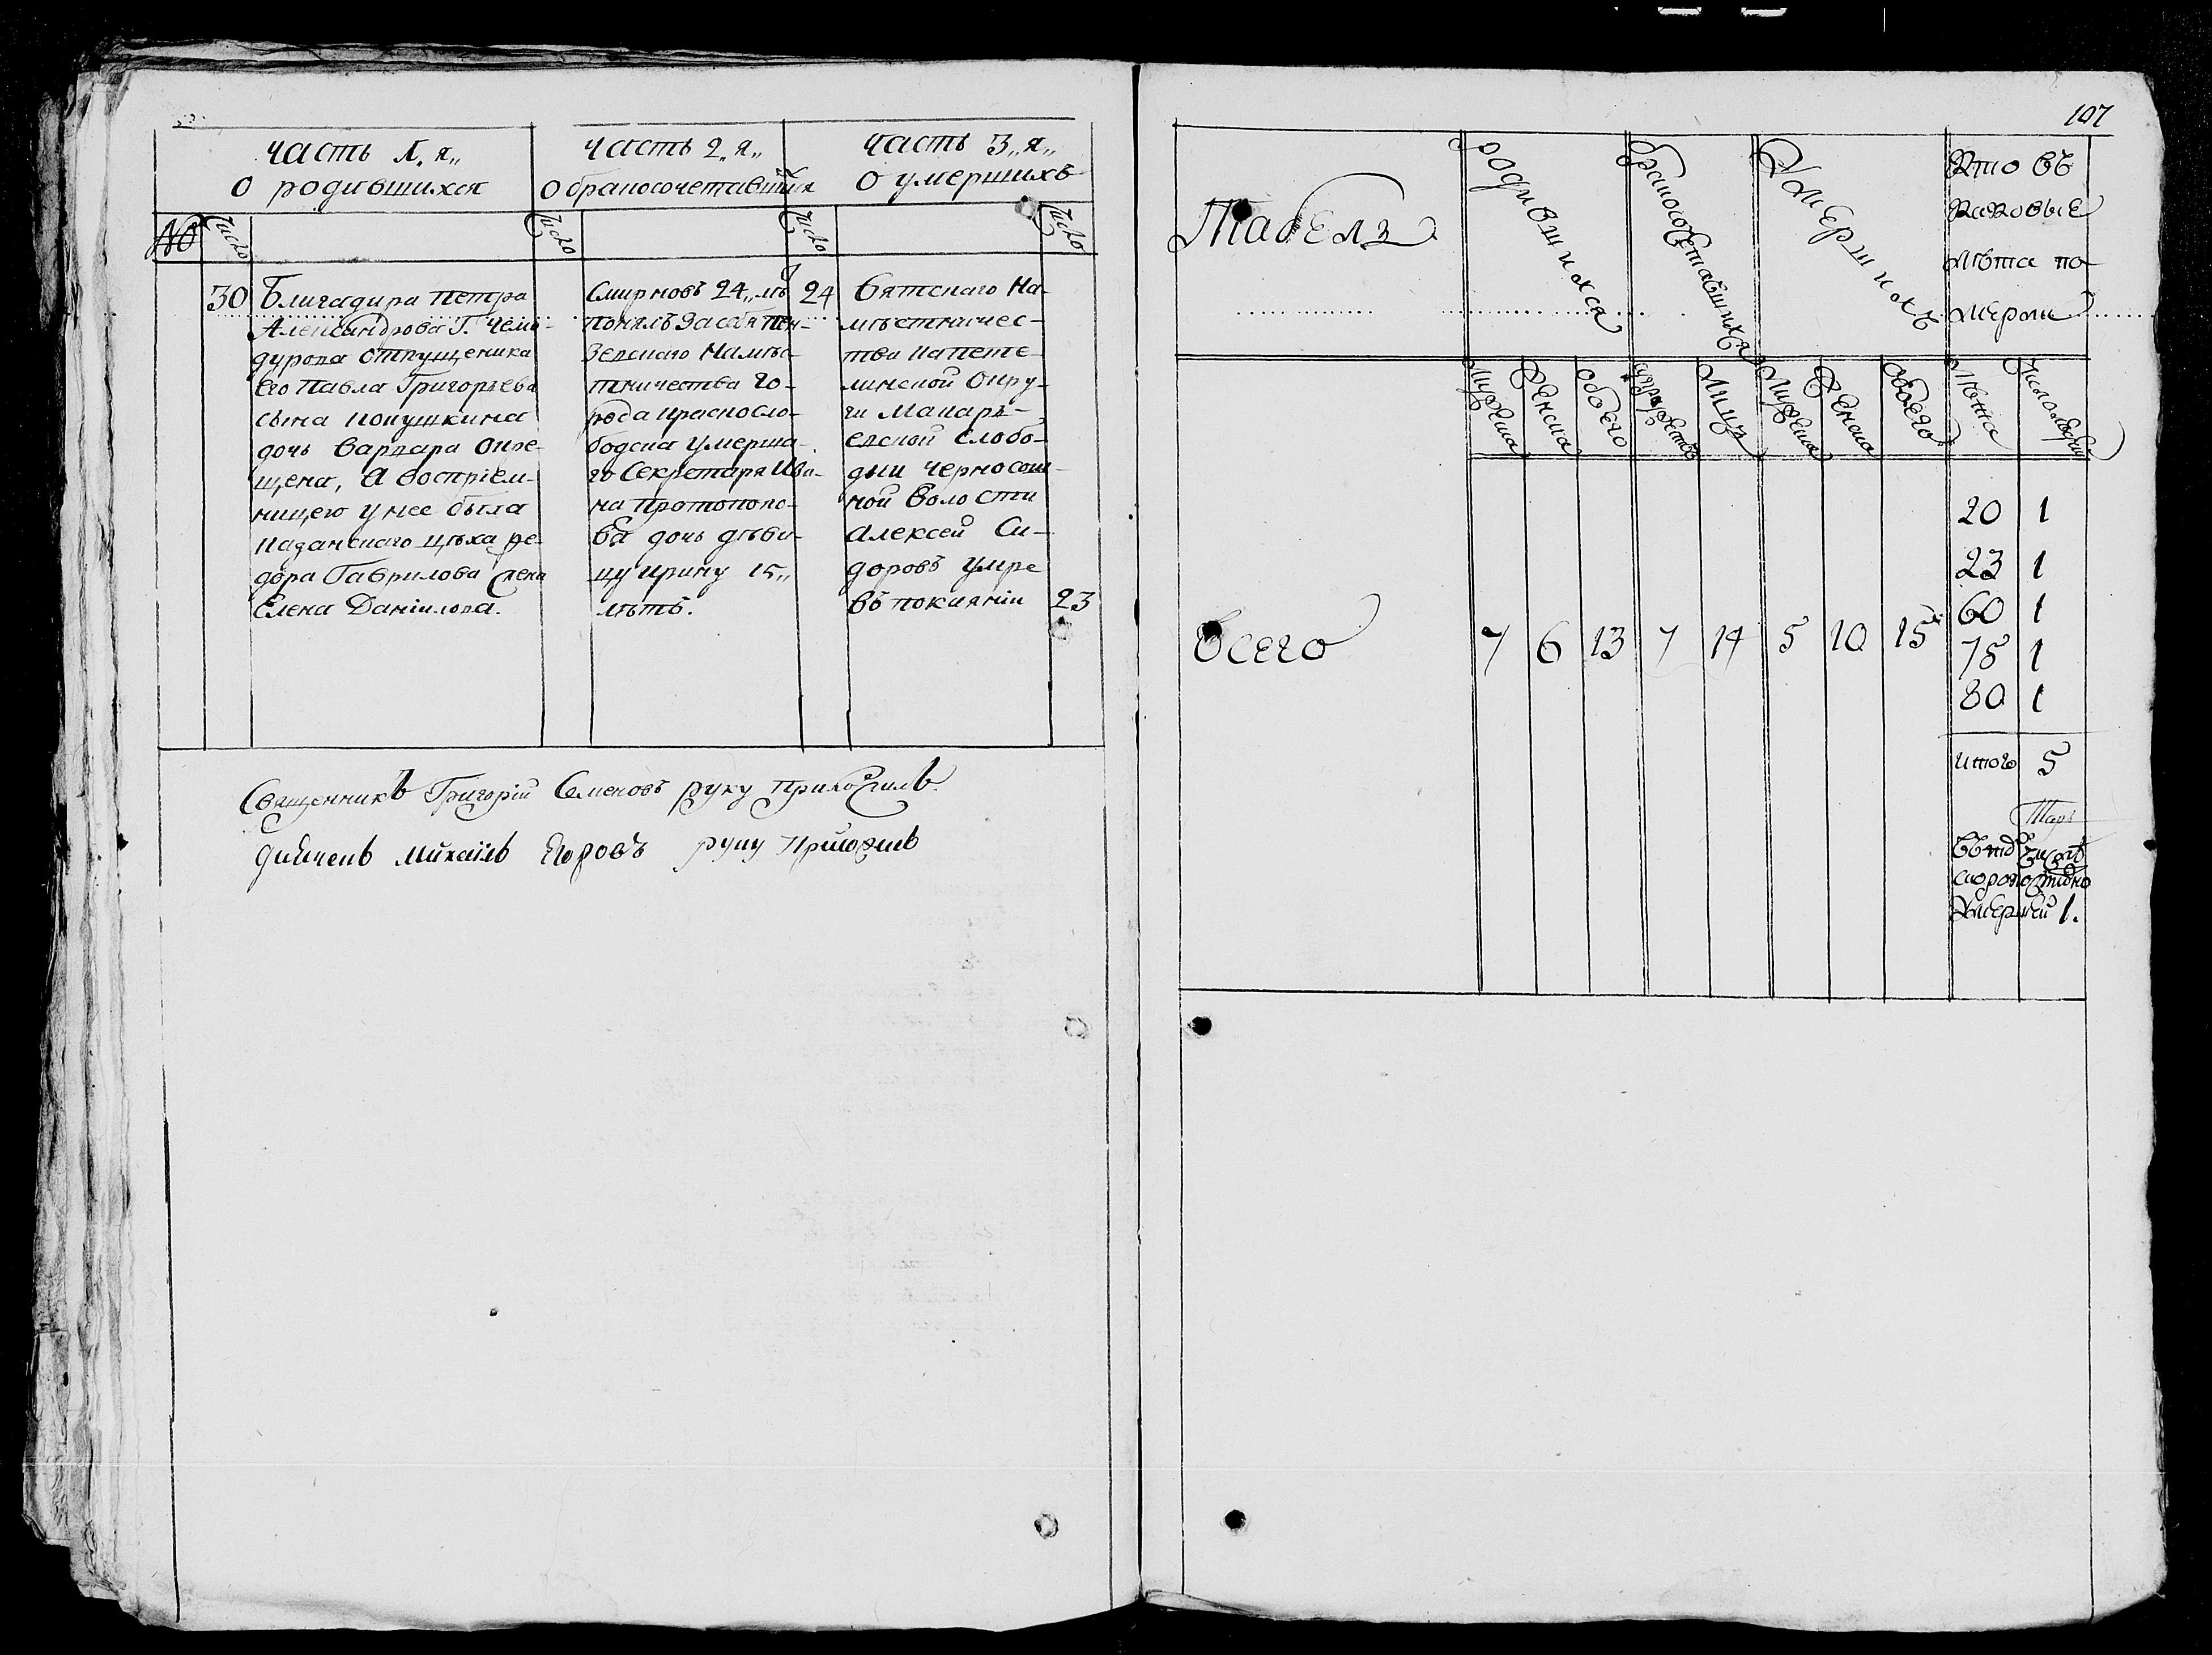 часть 1,я,,
о родившихся
часть 2,я,,
о браносочетавшихся
часть 3,,я,,
о умершихъ
№
число
число
число
число
30
Блигадира Петра
Александрова Г. Чемо-
дурова отпущеника
его Павла Григорьева
сына Кокушкина
дочь Варвара окре-
щена, а воспріем-
ницею у нее была
казанскаго цѣха Ѳе-
дора Гаврилова жена
Елена Даніилова.
Смирновъ 24,, лѣ
понялъ за себя Пен-
зенскаго намѣс-
тничества го-
рода Краснослo-
бодска умерша-
го Секретаря Ива-
на Протопопо-
ва дочь дѣви-
цу Ирину 15,,
лѣтъ.
24
Вятскаго На-
мѣстничес-
тва
Окру-
ги Макарь-
евской слобо-
ды черносош-
ной волости
Алексей Си-
доровъ умре
въ покаяніи
23
Священникъ Григорій Семеновъ руку приложилъ.
диячекъ Михаилъ Егоровъ руку приложилъ
107
Табель
родившихся
браносочетавшихся
Умершихъ
Кто въ
каковые
лѣта по-
мерли
мужеска
женска
обоего
супружествъ
лицъ
мужеска
женска
обоего
лѣта
число людей
Всего
7 6 13 7 14 5 10 15
20 1
23 1
60 1
75 1
80 1
итого 5
въ томъ числѣ
скоропостижно
умершей 1.